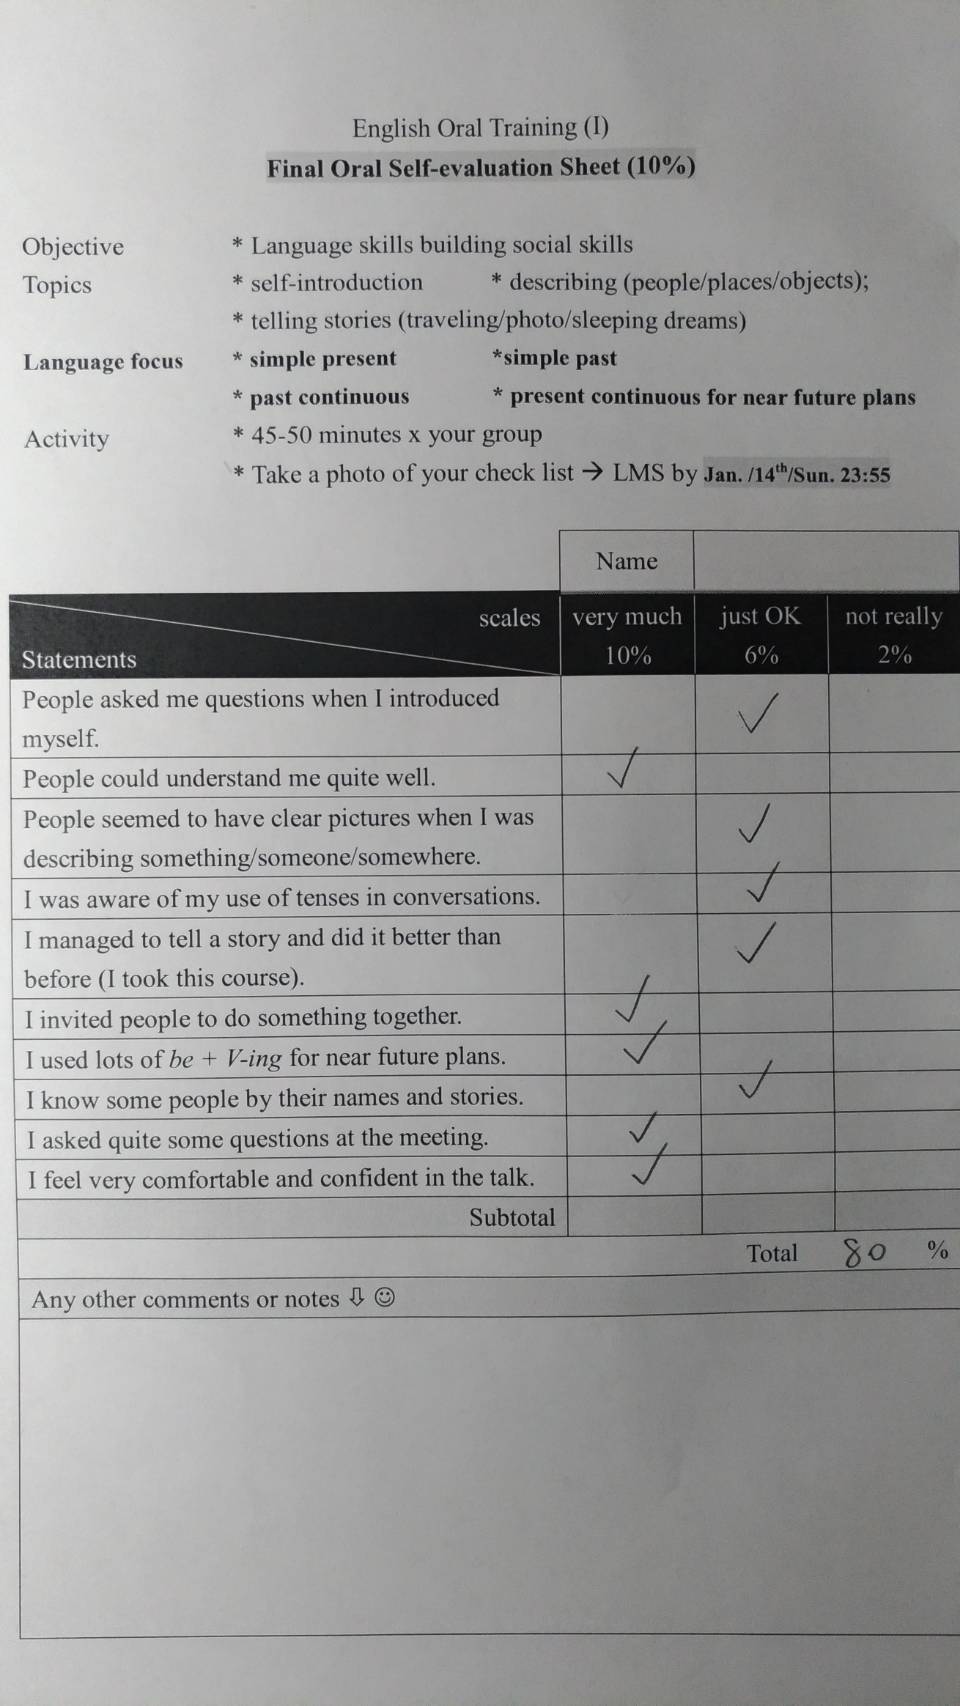 English Oral Training (I)
Final Oral Self-evaluation Sheet (10%)
Objective * Language skills building social skills
Topics * self-introduction * describing (people/places/objects);
* telling stories (traveling/photo/sleeping dreams)
Language focus * simple present *simple past
* past continuous * present continuous for near future plans
Activity * 45-50 minutes x your group
* Take a photo of your check list → LMS by Jan. /14th/Sun. 23:55
Name
scales very much just OK not really
Statements 10% 6% 2%
People asked me questions when I introduced ✓
myself.
People could understand me quite well. ✓
People seemed to have clear pictures when I was ✓
describing something/someone/somewhere.
I was aware of my use of tenses in conversations. ✓
I managed to tell a story and did it better than ✓
before (I took this course).
I invited people to do something together. ✓
I used lots of be + V-ing for near future plans. ✓
I know some people by their names and stories. ✓
I asked quite some questions at the meeting. ✓
I feel very comfortable and confident in the talk. ✓
Subtotal
Total 80 %
Any other comments or notes ⇩ ☺